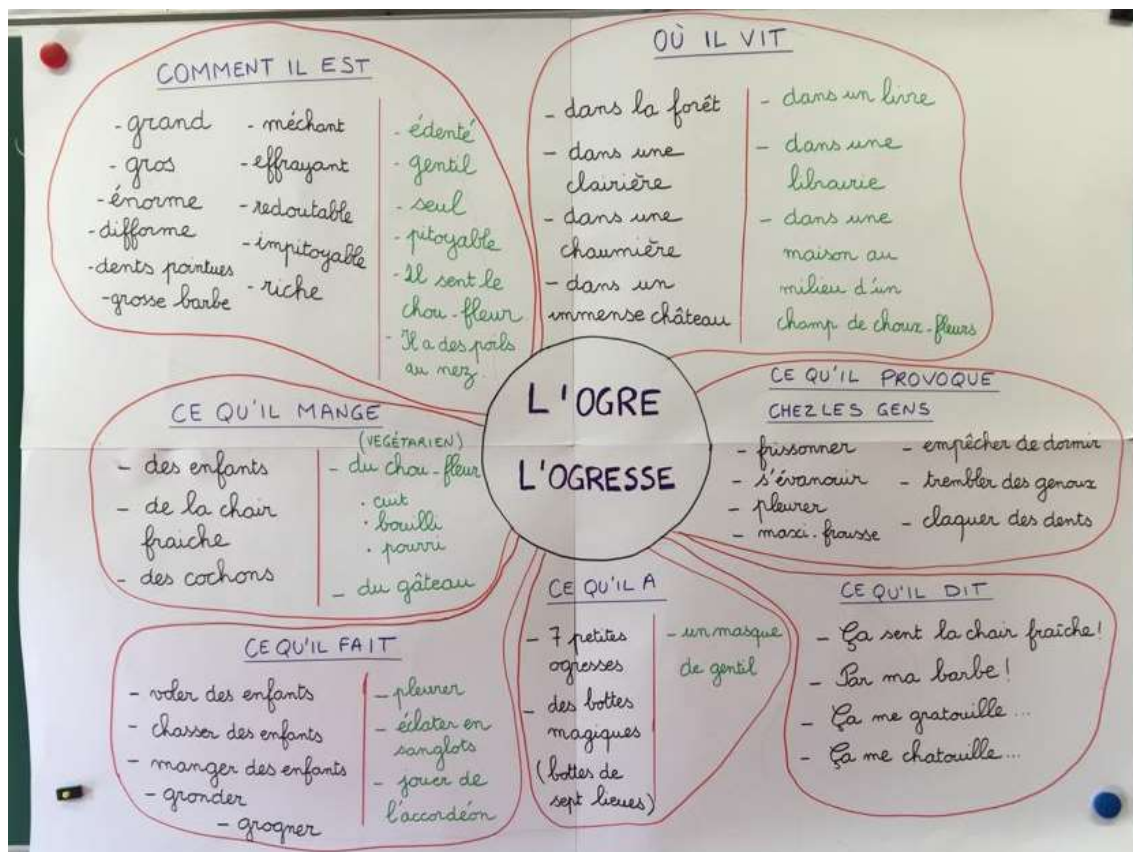 COMMENT IL EST
- grand
- gros
- énorme
- difforme
- dents pointues
- grosse barbe
- méchant
- effrayant
- redoutable
- impitoyable
- riche
- édenté
- gentil
- seul
- pitoyable
- Il sent le
chou-fleur.
- Il a des poils
au nez.
OÙ IL VIT
- dans la forêt
- dans une
clairière
- dans une
chaumière
- dans un
immense château
- dans un livre
- dans une
librairie
- dans une
maison au
milieu d'un
champ de choux-fleurs
L'OGRE
L'OGRESSE
CE QU'IL MANGE
- des enfants
- de la chair
fraiche
- des cochons
(VEGÉTARIEN)
- du chou-fleur
• cuit
• bouilli
• pourri
- du gâteau
CE QU'IL PROVOQUE
CHEZ LES GENS
- frissonner
- s'évanouir
- pleurer
- maxi-frousse
- empêcher de dormir
- trembler des genoux
- claquer des dents
CE QU'IL FAIT
- voler des enfants
- chasser des enfants
- manger des enfants
- gronder
- grogner
- pleurer
- éclater en
sanglots
- jouer de
l'accordéon
CE QU'IL A
- 7 petites
ogresses
- des bottes
magiques
(bottes de
sept lieues)
- un masque
de gentil
CE QU'IL DIT
- Ça sent la chair fraîche !
- Par ma barbe !
- Ça me gratouille ...
- Ça me chatouille ...